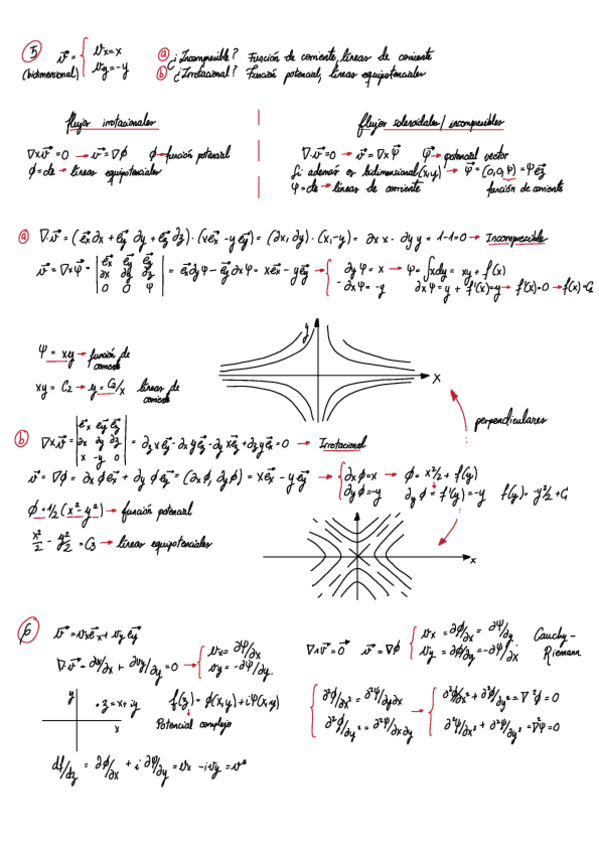 5 v⃗ = { vx = x
vy = -y
(bidimensional)
a ¿Incompresible? Función de corriente, líneas de corriente
b ¿Irrotacional? Función potencial, líneas equipotenciales
flujos irrotacionales
∇×v⃗ = 0 → v⃗ = ∇ϕ ϕ→función potencial
ϕ = cte → líneas equipotenciales
flujos solenoidales / incompresibles
∇·v⃗ = 0 → v⃗ = ∇×Ψ⃗ Ψ⃗→potencial vector
Si además es bidimensional (x,y) → Ψ⃗ = (0,0,Ψ) = Ψe⃗z
Ψ = cte → líneas de corriente función de corriente
a ∇·v⃗ = (e⃗x ∂x + e⃗y ∂y + e⃗z ∂z)·(xe⃗x - ye⃗y) = (∂x, ∂y)·(x,-y) = ∂x x - ∂y y = 1-1=0 → Incompresible
v⃗ = ∇×Ψ⃗ = | e⃗x e⃗y e⃗z | = e⃗x∂yΨ - e⃗y∂xΨ = xe⃗x - ye⃗y → { ∂yΨ = x → Ψ = ∫xdy = xy + f(x)
∂x ∂y ∂z
0 0 Ψ
-∂xΨ = -y ∂xΨ = y + f'(x) = y → f'(x)=0 → f(x)=C
Ψ = xy → función de corriente
xy = C2 → y = C2/x líneas de corriente
y
x
perpendiculares
b ∇×v⃗ = | e⃗x e⃗y e⃗z | = ∂z x e⃗y - ∂x y e⃗z - ∂y x e⃗z + ∂z y e⃗x = 0 → Irrotacional
∂x ∂y ∂z
x -y 0
v⃗ = ∇ϕ = ∂xϕ e⃗x + ∂yϕ e⃗y = (∂xϕ, ∂yϕ) = xe⃗x - ye⃗y → { ∂xϕ = x → ϕ = x²/2 + f(y)
∂yϕ = -y ∂yϕ = f'(y) = -y f(y) = -y²/2 + C
ϕ = 1/2 (x² - y²) → función potencial
x²/2 - y²/2 = C3 → líneas equipotenciales
x
6 v⃗ = vx e⃗x + vy e⃗y
∇·v⃗ = ∂vx/∂x + ∂vy/∂y = 0 → { vx = ∂Ψ/∂x
vy = -∂Ψ/∂y.
∇∧v⃗ = 0⃗ v⃗ = ∇ϕ { vx = ∂ϕ/∂x = ∂Ψ/∂y
vy = ∂ϕ/∂y = -∂Ψ/∂x
Cauchy-
Riemann
y
z = x + iy
x
f(z) = ϕ(x,y) + iΨ(x,y)
Potencial complejo
{ ∂²ϕ/∂x² = ∂²Ψ/∂y∂x → { ∂²ϕ/∂x² + ∂²ϕ/∂y² = ∇²ϕ = 0
∂²ϕ/∂y² = ∂²Ψ/∂x∂y ∂²Ψ/∂x² + ∂²Ψ/∂y² = ∇²Ψ = 0
df/dz = ∂ϕ/∂x + i ∂Ψ/∂y = vx - ivy = v*